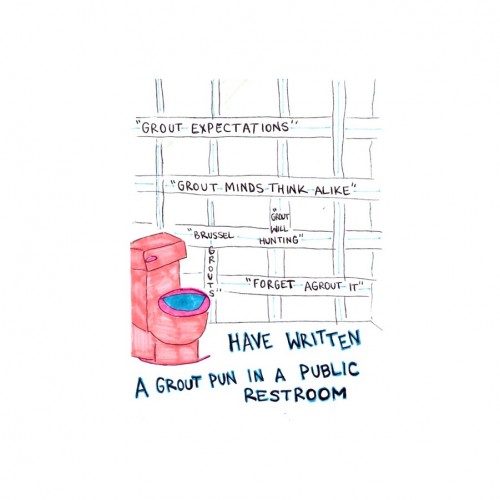 "GROUT EXPECTATIONS"
"GROUT MINDS THINK ALIKE"
"GROUT
WILL
HUNTING"
"BRUSSEL
GROUTS"
"FORGET AGROUT IT"
HAVE WRITTEN
A GROUT PUN IN A PUBLIC
RESTROOM